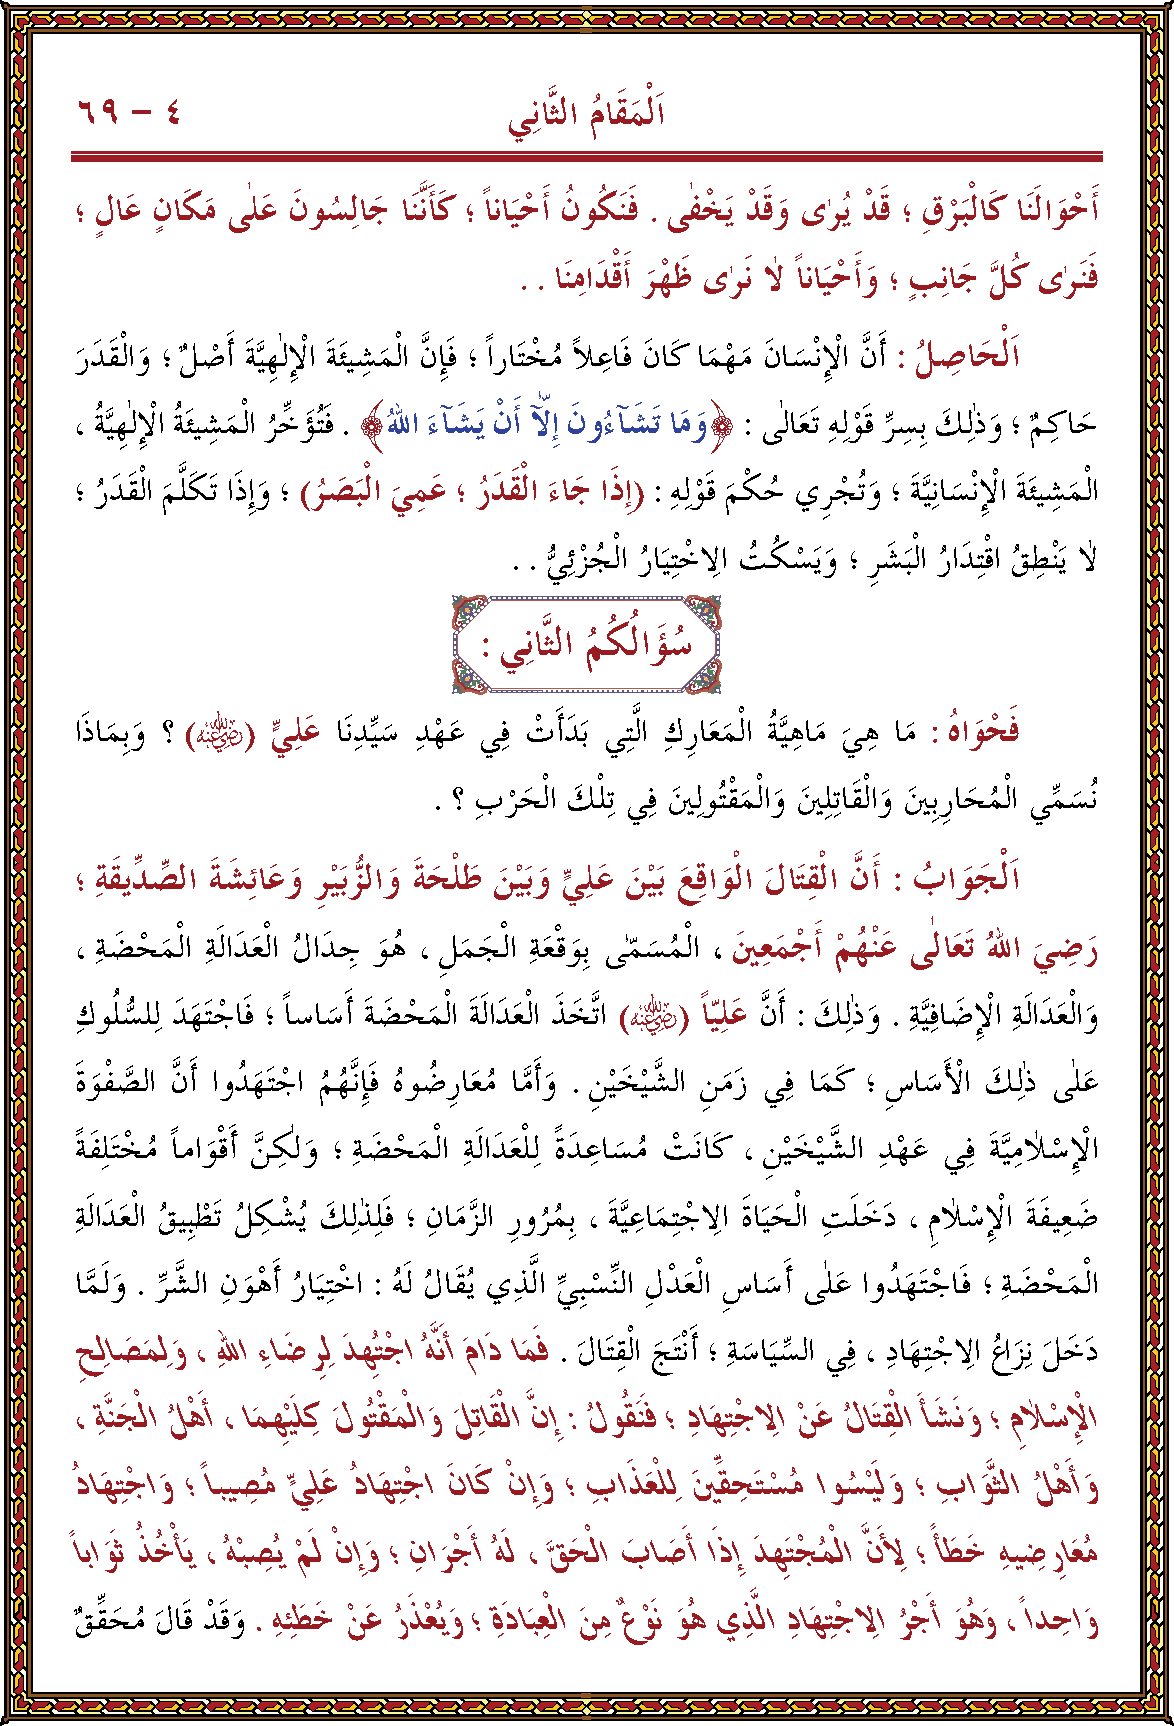 ٤ – ٦٩
اَلْمَقَامُ الثَّانِي
أَحْوَالَنَا كَالْبَرْقِ ؛ قَدْ يُرٰى وَقَدْ يَخْفٰى . فَنَكُونُ أَحْيَاناً ؛ كَأَنَّنَا جَالِسُونَ عَلٰى مَكَانٍ عَالٍ ؛
فَنَرٰى كُلَّ جَانِبٍ ؛ وَأَحْيَاناً لاٰ نَرٰى ظَهْرَ أَقْدَامِنَا . .
اَلْحَاصِلُ : أَنَّ الْإِنْسَانَ مَهْمَا كَانَ فَاعِلاً مُخْتَاراً ؛ فَإِنَّ الْمَشِيئَةَ الْإِلٰهِيَّةَ أَصْلٌ ؛ وَالْقَدَرَ
حَاكِمٌ ؛ وَذٰلِكَ بِسِرِّ قَوْلِهِ تَعَالٰى : ﴿وَمَا تَشَٓاءُونَ إِلَّٓا أَنْ يَشَٓاءَ اللهُ﴾ . فَتُؤَخِّرُ الْمَشِيئَةُ الْإِلٰهِيَّةُ ،
الْمَشِيئَةَ الْإِنْسَانِيَّةَ ؛ وَتُجْرِي حُكْمَ قَوْلِهِ : (إِذَا جَاءَ الْقَدَرُ ؛ عَمِيَ الْبَصَرُ) ؛ وَإِذَا تَكَلَّمَ الْقَدَرُ ؛
لاٰ يَنْطِقُ اقْتِدَارُ الْبَشَرِ ؛ وَيَسْكُتُ الِاخْتِيَارُ الْجُزْئِيُّ . .
سُؤَالُكُمُ الثَّانِي :
فَحْوَاهُ : مَا هِيَ مَاهِيَّةُ الْمَعَارِكِ الَّتِي بَدَأَتْ فِي عَهْدِ سَيِّدِنَا عَلِيٍّ (رَضِيَ اللهُ عَنْهُ) ؟ وَبِمَاذَا
نُسَمِّي الْمُحَارِبِينَ وَالْقَاتِلِينَ وَالْمَقْتُولِينَ فِي تِلْكَ الْحَرْبِ ؟ .
اَلْجَوَابُ : أَنَّ الْقِتَالَ الْوَاقِعَ بَيْنَ عَلِيٍّ وَبَيْنَ طَلْحَةَ وَالزُّبَيْرِ وَعَائِشَةَ الصِّدِّيقَةِ ؛
رَضِيَ اللهُ تَعَالٰى عَنْهُمْ أَجْمَعِينَ ، الْمُسَمّٰى بِوَقْعَةِ الْجَمَلِ ، هُوَ جِدَالُ الْعَدَالَةِ الْمَحْضَةِ ،
وَالْعَدَالَةِ الْإِضَافِيَّةِ . وَذٰلِكَ : أَنَّ عَلِيّاً (رَضِيَ اللهُ عَنْهُ) اتَّخَذَ الْعَدَالَةَ الْمَحْضَةَ أَسَاساً ؛ فَاجْتَهَدَ لِلسُّلُوكِ
عَلٰى ذٰلِكَ الْأَسَاسِ ؛ كَمَا فِي زَمَنِ الشَّيْخَيْنِ . وَأَمَّا مُعَارِضُوهُ فَإِنَّهُمُ اجْتَهَدُوا أَنَّ الصَّفْوَةَ
الْإِسْلاٰمِيَّةَ فِي عَهْدِ الشَّيْخَيْنِ ، كَانَتْ مُسَاعِدَةً لِلْعَدَالَةِ الْمَحْضَةِ ؛ وَلٰكِنَّ أَقْوَاماً مُخْتَلِفَةً
ضَعِيفَةَ الْإِسْلاٰمِ ، دَخَلَتِ الْحَيَاةَ الِاجْتِمَاعِيَّةَ ، بِمُرُورِ الزَّمَانِ ؛ فَلِذٰلِكَ يُشْكِلُ تَطْبِيقُ الْعَدَالَةِ
الْمَحْضَةِ ؛ فَاجْتَهَدُوا عَلٰى أَسَاسِ الْعَدْلِ النِّسْبِيِّ الَّذِي يُقَالُ لَهُ : اخْتِيَارُ أَهْوَنِ الشَّرِّ . وَلَمَّا
دَخَلَ نِزَاعُ الِاجْتِهَادِ ، فِي السِّيَاسَةِ ؛ أَنْتَجَ الْقِتَالَ . فَمَا دَامَ أَنَّهُ اجْتُهِدَ لِرِضَاءِ اللهِ ، وَلِمَصَالِحِ
الْإِسْلاٰمِ ؛ وَنَشَأَ الْقِتَالُ عَنْ الِاجْتِهَادِ ؛ فَنَقُولُ : إِنَّ الْقَاتِلَ وَالْمَقْتُولَ كِلَيْهِمَا ، أَهْلُ الْجَنَّةِ ،
وَأَهْلُ الثَّوَابِ ؛ وَلَيْسُوا مُسْتَحِقِّينَ لِلْعَذَابِ ؛ وَإِنْ كَانَ اجْتِهَادُ عَلِيٍّ مُصِيباً ؛ وَاجْتِهَادُ
مُعَارِضِيهِ خَطَأً ؛ لِأَنَّ الْمُجْتَهِدَ إِذَا أَصَابَ الْحَقَّ ، لَهُ أَجْرَانِ ؛ وَإِنْ لَمْ يُصِبْهُ ، يَأْخُذُ ثَوَاباً
وَاحِداً ، وَهُوَ أَجْرُ الِاجْتِهَادِ الَّذِي هُوَ نَوْعٌ مِنَ الْعِبَادَةِ ؛ وَيُعْذَرُ عَنْ خَطَئِهِ . وَقَدْ قَالَ مُحَقِّقٌ